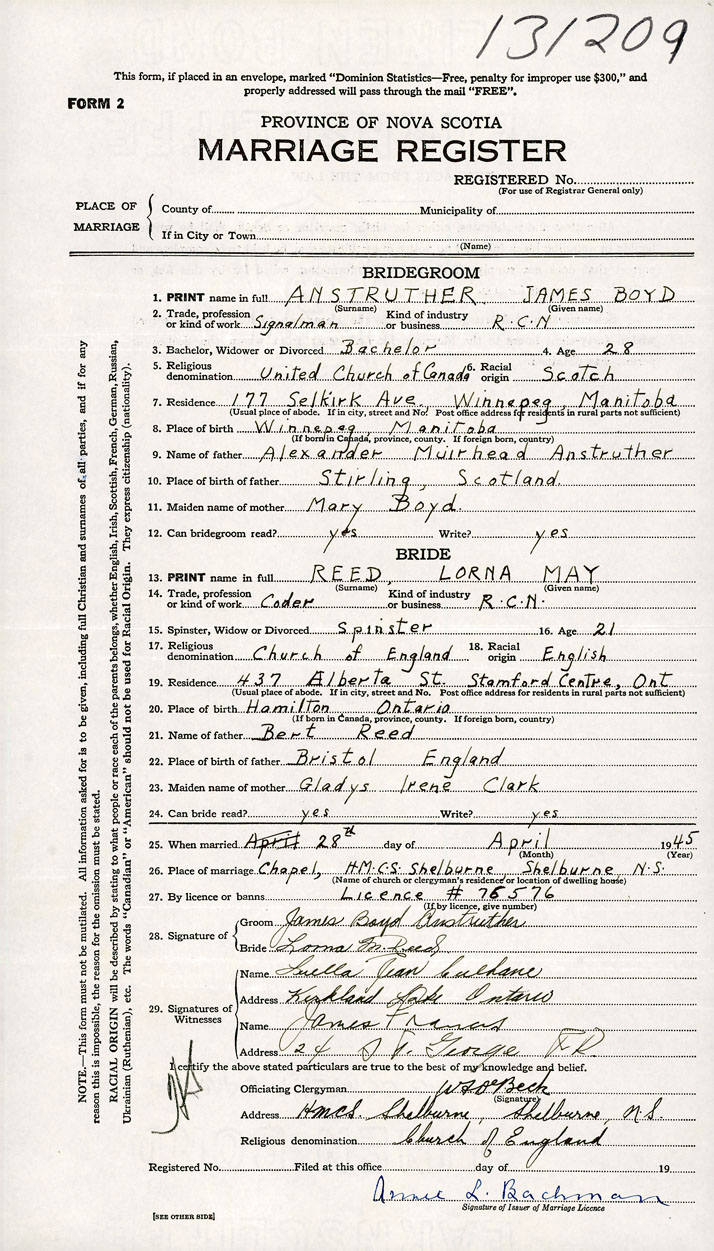 131209
This form, if placed in an envelope, marked "Dominion Statistics—Free, penalty for improper use $300," and
properly addressed will pass through the mail "FREE".
FORM 2
PROVINCE OF NOVA SCOTIA
MARRIAGE REGISTER
REGISTERED No.
(For use of Registrar General only)
PLACE OF MARRIAGE
County of Municipality of
If in City or Town
(Name)
BRIDEGROOM
1. PRINT name in full ANSTRUTHER, JAMES BOYD
(Surname) (Given name)
2. Trade, profession or kind of work Signalman Kind of industry or business R.C.N.
3. Bachelor, Widower or Divorced Bachelor 4. Age 28
5. Religious denomination United Church of Canada 6. Racial origin Scotch
7. Residence 177 Selkirk Ave. Winnepeg, Manitoba
(Usual place of abode. If in city, street and No. Post office address for residents in rural parts not sufficient)
8. Place of birth Winnepeg, Manitoba
(If born in Canada, province, county. If foreign born, country)
9. Name of father Alexander Muirhead Anstruther
10. Place of birth of father Stirling, Scotland.
11. Maiden name of mother Mary Boyd.
12. Can bridegroom read? yes Write? yes
BRIDE
13. PRINT name in full REED, LORNA MAY
(Surname) (Given name)
14. Trade, profession or kind of work Coder Kind of industry or business R.C.N.
15. Spinster, Widow or Divorced Spinster 16. Age 21
17. Religious denomination Church of England 18. Racial origin English
19. Residence 437 Alberta St. Stamford Centre, Ont
(Usual place of abode. If in city, street and No. Post office address for residents in rural parts not sufficient)
20. Place of birth Hamilton Ontario
(If born in Canada, province, county. If foreign born, country)
21. Name of father Bert Reed
22. Place of birth of father Bristol England
23. Maiden name of mother Gladys Irene Clark
24. Can bride read? yes Write? yes
25. When married April 28th day of April 1945
(Month) (Year)
26. Place of marriage Chapel, H.M.C.S. Shelburne, Shelburne N.S.
(Name of church or clergyman's residence or location of dwelling house)
27. By licence or banns Licence # 76576
(If by licence, give number)
28. Signature of
Groom James Boyd Anstruther
Bride Lorna M. Reed
29. Signatures of Witnesses
Name Luella Jean Culhane
Address Kirkland Lake Ontario
Name James Francis
Address 24 St. George
I certify the above stated particulars are true to the best of my knowledge and belief.
Officiating Clergyman Beck
(Signature)
Address HMCS Shelburne, Shelburne, N.S.
Religious denomination Church of England
Registered No. Filed at this office day of 19
Annie L. Bachman
Signature of Issuer of Marriage Licence
[SEE OTHER SIDE]
NOTE.—This form must not be mutilated. All information asked for is to be given, including full Christian and surnames of all parties, and if for any
reason this is impossible, the reason for the omission must be stated.
RACIAL ORIGIN will be described by stating to what people or race each of the parents belongs, whether English, Irish, Scottish, French, German, Russian,
Ukrainian (Ruthenian), etc. The words "Canadian" or "American" should not be used for Racial Origin. They express citizenship (nationality).